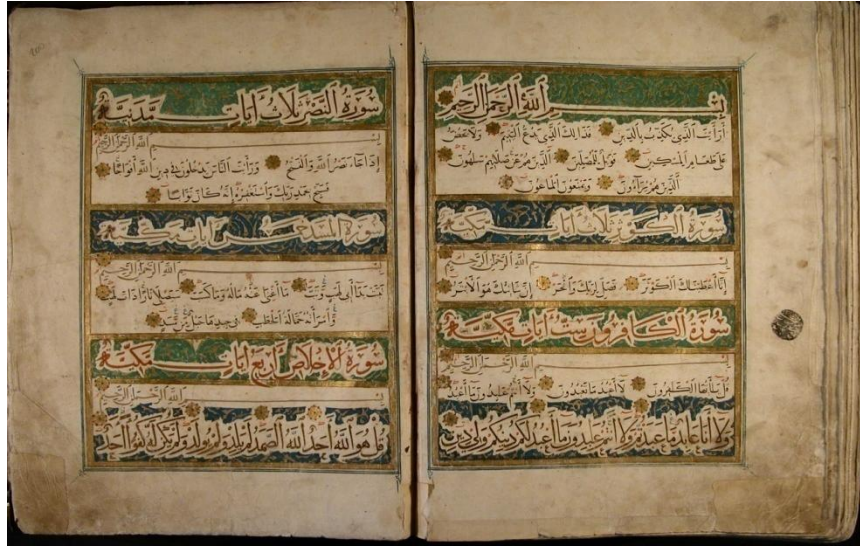 بسم الله الرحمن الرحيم
أرأيت الذي يكذب بالدين فذلك الذي يدع اليتيم ولا يحض
على طعام المسكين فويل للمصلين الذين هم عن صلاتهم ساهون
الذين هم يراءون ويمنعون الماعون
سورة الكوثر ثلاث آيات مكية
بسم الله الرحمن الرحيم
إنا أعطيناك الكوثر فصل لربك وانحر إن شانئك هو الأبتر
سورة الكافرون ست آيات مكية
بسم الله الرحمن الرحيم
قل يا أيها الكافرون لا أعبد ما تعبدون ولا أنتم عابدون ما أعبد
ولا أنا عابد ما عبدتم ولا أنتم عابدون ما أعبد لكم دينكم ولي دين
سورة النصر ثلاث آيات مدنية
بسم الله الرحمن الرحيم
إذا جاء نصر الله والفتح ورأيت الناس يدخلون في دين الله أفواجا
فسبح بحمد ربك واستغفره إنه كان توابا
سورة المسد خمس آيات مكية
بسم الله الرحمن الرحيم
تبت يدا أبي لهب وتب ما أغنى عنه ماله وما كسب سيصلى نارا ذات لهب
وامرأته حمالة الحطب في جيدها حبل من مسد
سورة الإخلاص أربع آيات مكية
بسم الله الرحمن الرحيم
قل هو الله أحد الله الصمد لم يلد ولم يولد ولم يكن له كفوا أحد